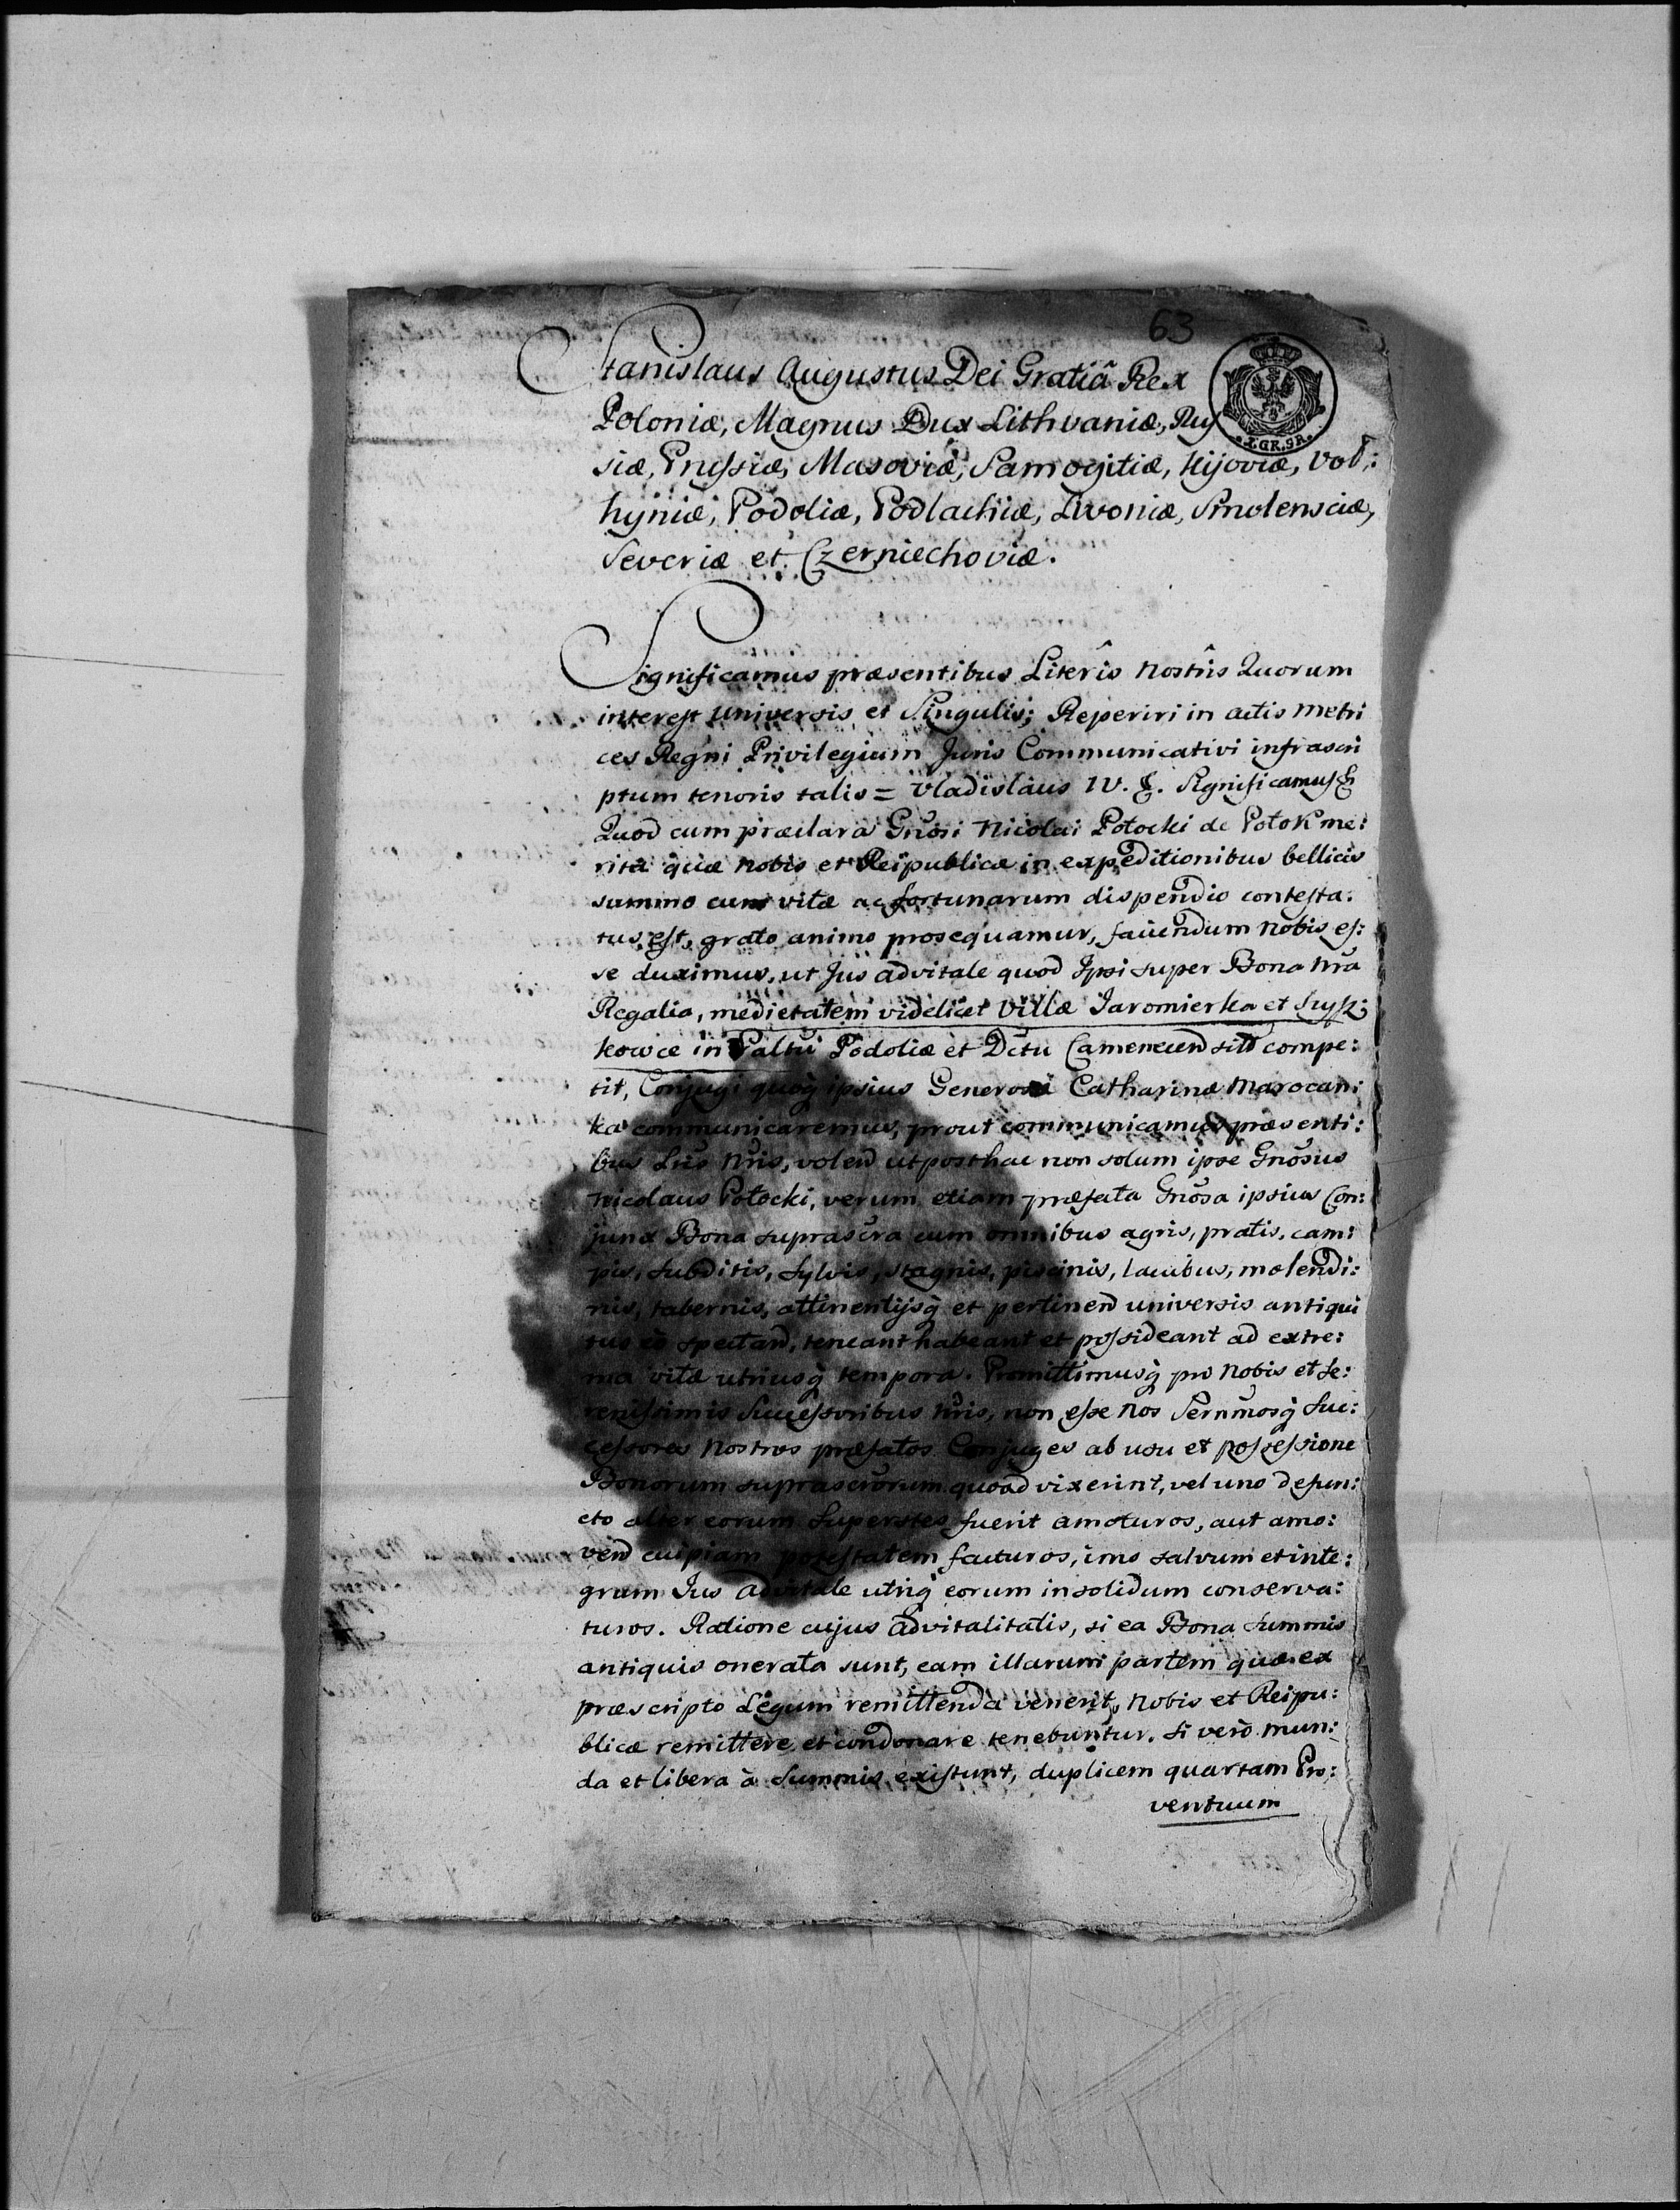 63
Stanislaus Augustus Dei Gratiâ Rex
Poloniæ, Magnus Dux Lithvaniæ, Rus
I.GR.SR.
siæ, Prussiæ, Masoviæ, Samogitiæ, Kijoviæ, Vol:
hyniæ, Podoliæ, Podlachiæ, Livoniæ, Smolensciæ,
Severiæ et Czerniechoviæ.
Significamus præsentibus Literîs Nostrîs Quorum
interest Universis et Singulis; Reperiri in actis Metri
ces Regni Privilegium Juris Communicativi infrascri
ptum tenoris talis = Vladislaus IV. &. Significamus &
Quod cum præclara Gnõsi Nicolai Potocki de Potok me:
rita quæ Nobis et Reipublicæ in expeditionibus bellicis
summo cum vitæ ac fortunarum dispendio contesta:
tus est, grato animo prosequamur, faciendum Nobis es:
se duximus, ut Jus advitale quod Ipsi super Bona Nrã
Regalia, medietatem videlicet Villæ Jaromierka et
kowce in Paltũ Podoliæ et Dctũ Camenecen sitt compe:
tit, Conjugi quoq̃ ipsius Generosæ Catharinæ Marocan:
ka communicaremus, prout communicamus præsenti:
bus Lrĩs Nrĩs, volen ut posthac non solum ipse Gnõsus
Nicolaus Potocki, verum etiam præfata Gnõsa ipsius Con:
junx Bona suprascrã cum omnibus agris, pratis, cam:
pis, subditis, sylvis, stagnis, piscinis, lacubus, molendi:
nis, tabernis, attinentijsq̃ et pertinen universis antiqui
tus eò spectan, teneant habeant et possideant ad extre:
ma vitæ utriusq̃ tempora. Promittimusq̃ pro Nobis et Se:
renissimis Successoribus Nrĩs, non esse Nos Sernmõsq̃ Suc:
cessores Nostros præfatos Conjuges ab usu et possessione
Bonorum suprascrõrum quoad vixerint, vel uno defun:
cto alter eorum Superstes fuerit amoturos, aut amo:
ven cuipiam potestatem facturos, imo salvum et inte:
grum Jus advitale utriq̃ eorum in solidum conserva:
turos. Ratione cujus advitalitatis, si ea Bona summis
antiquis onerata sunt, eam illarum partem quæ ex
præscripto Legum remittenda venerit, Nobis et Reipu:
blicæ remittere et condonare tenebuntur. Si verò mun:
da et libera à Summis existunt, duplicem quartam Pro:
ventuum